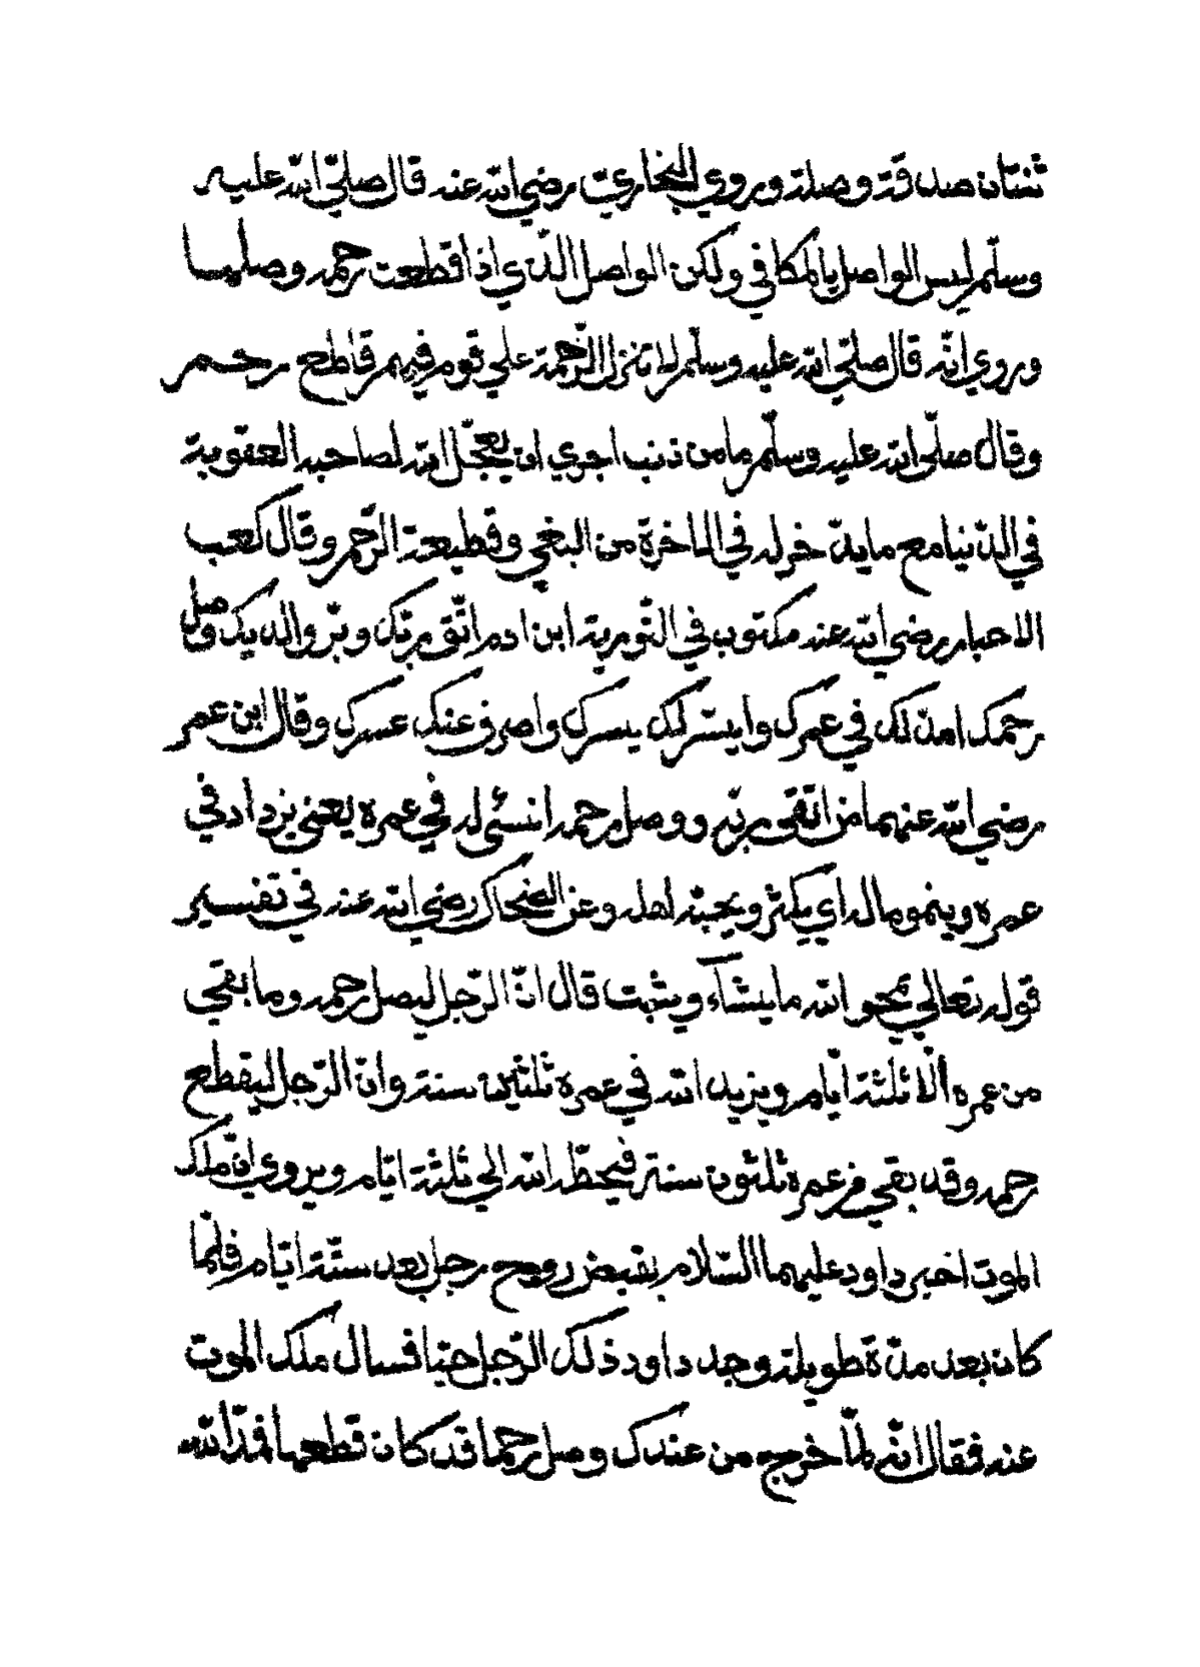 ثنتان صدقة وصلة وروي البخاري رضي الله عنه قال صلّي الله عليه
وسلّم ليس الواصل بالمكافي ولكن الواصل الّذي اذا قطعت رحمه وصلها
وروي انّه قال صلّي الله عليه وسلّم لا تنزل الرّحمة علي قوم فيهم قاطع رحم
وقال صلّي الله عليه وسلّم ما من ذنب اجري ان يعجّل الله لصاحبه العقوبة
في الدّنيا مع ما يدّخر له في الاخرة من البغي وقطيعة الرّحم وقال كعب
الاحبار رضي الله عنه مكتوب في التّورية ابن ادم اتّق ربّك وبرّ والديك وصل
رحمك امدّ لك في عمرك وايسّر لك يسرك واصرف عنك عسرك وقال ابن عمر
رضي الله عنهما من اتّقي ربّه ووصل رحمه انسئ له في عمره يعني يزداد في
عمره وينمو ماله اي يكثر ويحبّه اهله وعن الضحاك رضي الله عنه في تفسير
قوله تعالي يمحو الله ما يشآء ويثبت قال انّ الرّجل ليصل رحمه وما بقي
من عمره الّا ثلثة ايّام ويزيد الله في عمره ثلثين سنة وانّ الرّجل ليقطع
رحمه وقد بقي من عمره ثلثون سنة فيحطّه الله الي ثلثة ايّام ويروي انّ ملك
الموت اخبر داود عليهما السّلام بقبض روح رجل بعد ستّة ايّام فلمّا
كان بعد مدّة طويلة وجد داود ذلك الرّجل حيّا فسال ملك الموت
عنه فقال انّه لمّا خرج من عندك وصل رحما قد كان قطعها فمدّ الله